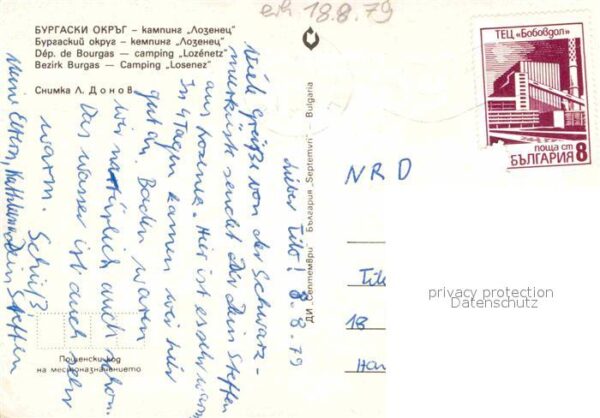 erh 18.8.79
БУРГАСКИ ОКРЪГ – кампинг „Лозенец"
Бургаский округ – кемпинг „Лозенец"
Dép. de Bourgas — Camping „Lozénetz"
Bezirk Burgas — Camping „Losenez"
Снимка Л. Донов
ДИ „Септември" България „Septemvri" – Bulgaria
ТЕЦ „Бобовдол"
поща ст
БЪЛГАРИЯ 8
8.8.79
Lieber Tilo!
Viele Grüße von der Schwarz-
meerküste sendet Dir Dein Steffen
aus Losenez. Hier ist es sehr warm
In 4 Tagen kamen wir hier
gut an. Baden waren
wir natürlich auch schon.
Das Wasser ist auch sehr
warm. Schüß
Dein Steffen
Meine Eltern,
NRD
Tilo
18
Пощенски код
на местоназначението
privacy protection
Datenschutz